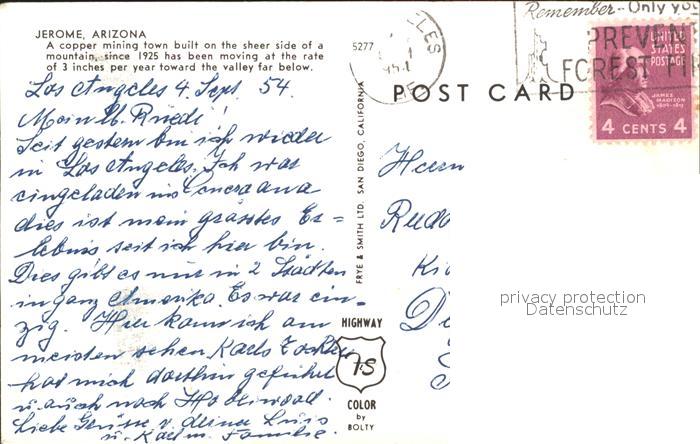 JEROME, ARIZONA
A copper mining town built on the sheer side of a
mountain, since 1925 has been moving at the rate
of 3 inches per year toward the valley far below.
5277
Los Angeles 4. Sept. 54.
Mein lb. Ruedi!
Seit gestern bin ich wieder
in Los Angeles. Ich war
eingeladen ins Cinerama
dies ist mein grösstes Er=
lebnis seit ich hier bin.
Dies gibt es nur in 2 Städten
in ganz Amerika. Es war ein-
zig. Hier kann ich am
meisten sehen. Karls Tochter
hat mich dorthin geführt
u. auch nach Hollywood.
Liebe Grüsse v. deiner
u. Karl m. Familie.
FRYE & SMITH LTD. SAN DIEGO, CALIFORNIA
HIGHWAY
COLOR
by
BOLTY
POST CARD
Remember - Only you
PREVEN
FOREST FI
UNITED
STATES
POSTAGE
JAMES
MADISON
4 CENTS 4
Herrn
privacy protection
Datenschutz